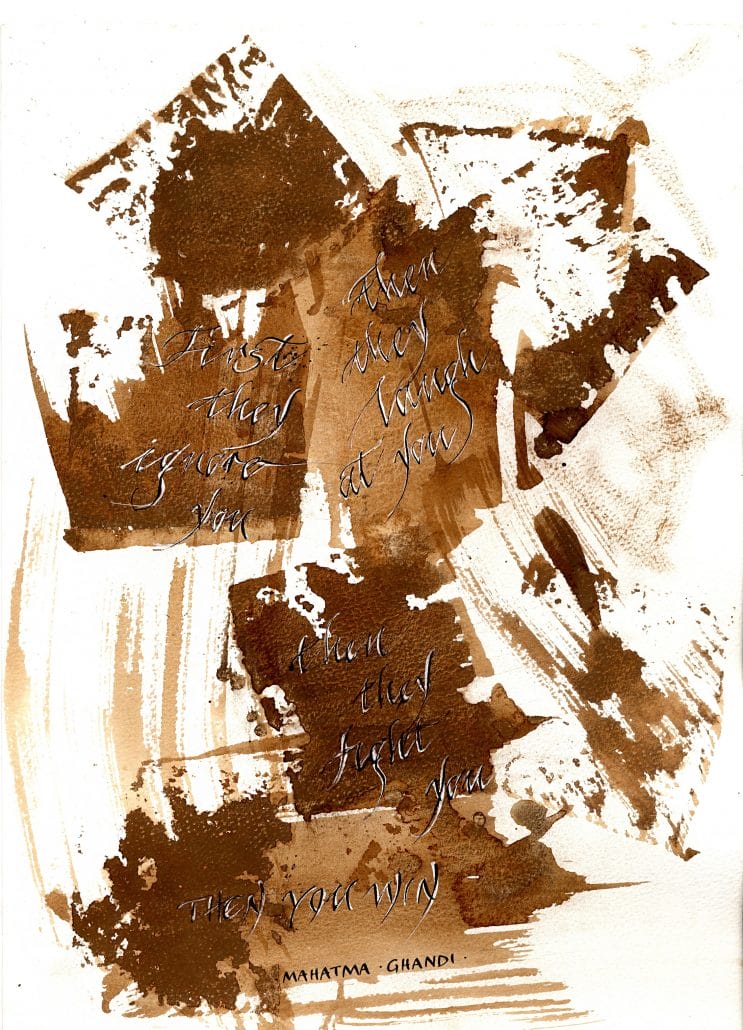 First
they
ignore
you
then
they
laugh
at you
then
they
fight
you
THEN YOU WIN
MAHATMA · GHANDI ·